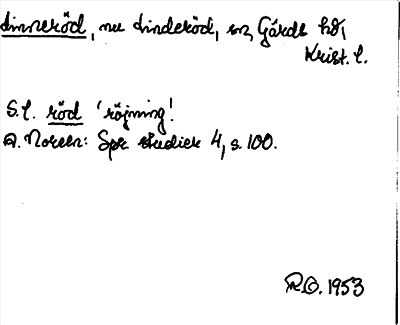 dinneröd, nu dinderöd, sn, Gärds hd,
Krist. l.
S.l. röd 'röjning'.
A. Noreen: Spr. studier 4, s. 100.
R.O. 1953